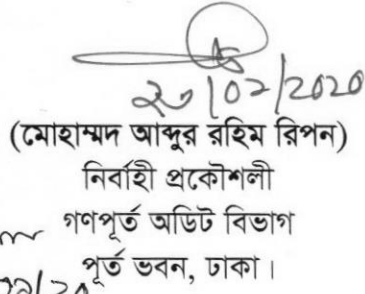 /02/2020
(মোহাম্মদ আব্দুর রহিম রিপন)
নির্বাহী প্রকৌশলী
গণপূর্ত অডিট বিভাগ
পূর্ত ভবন, ঢাকা।